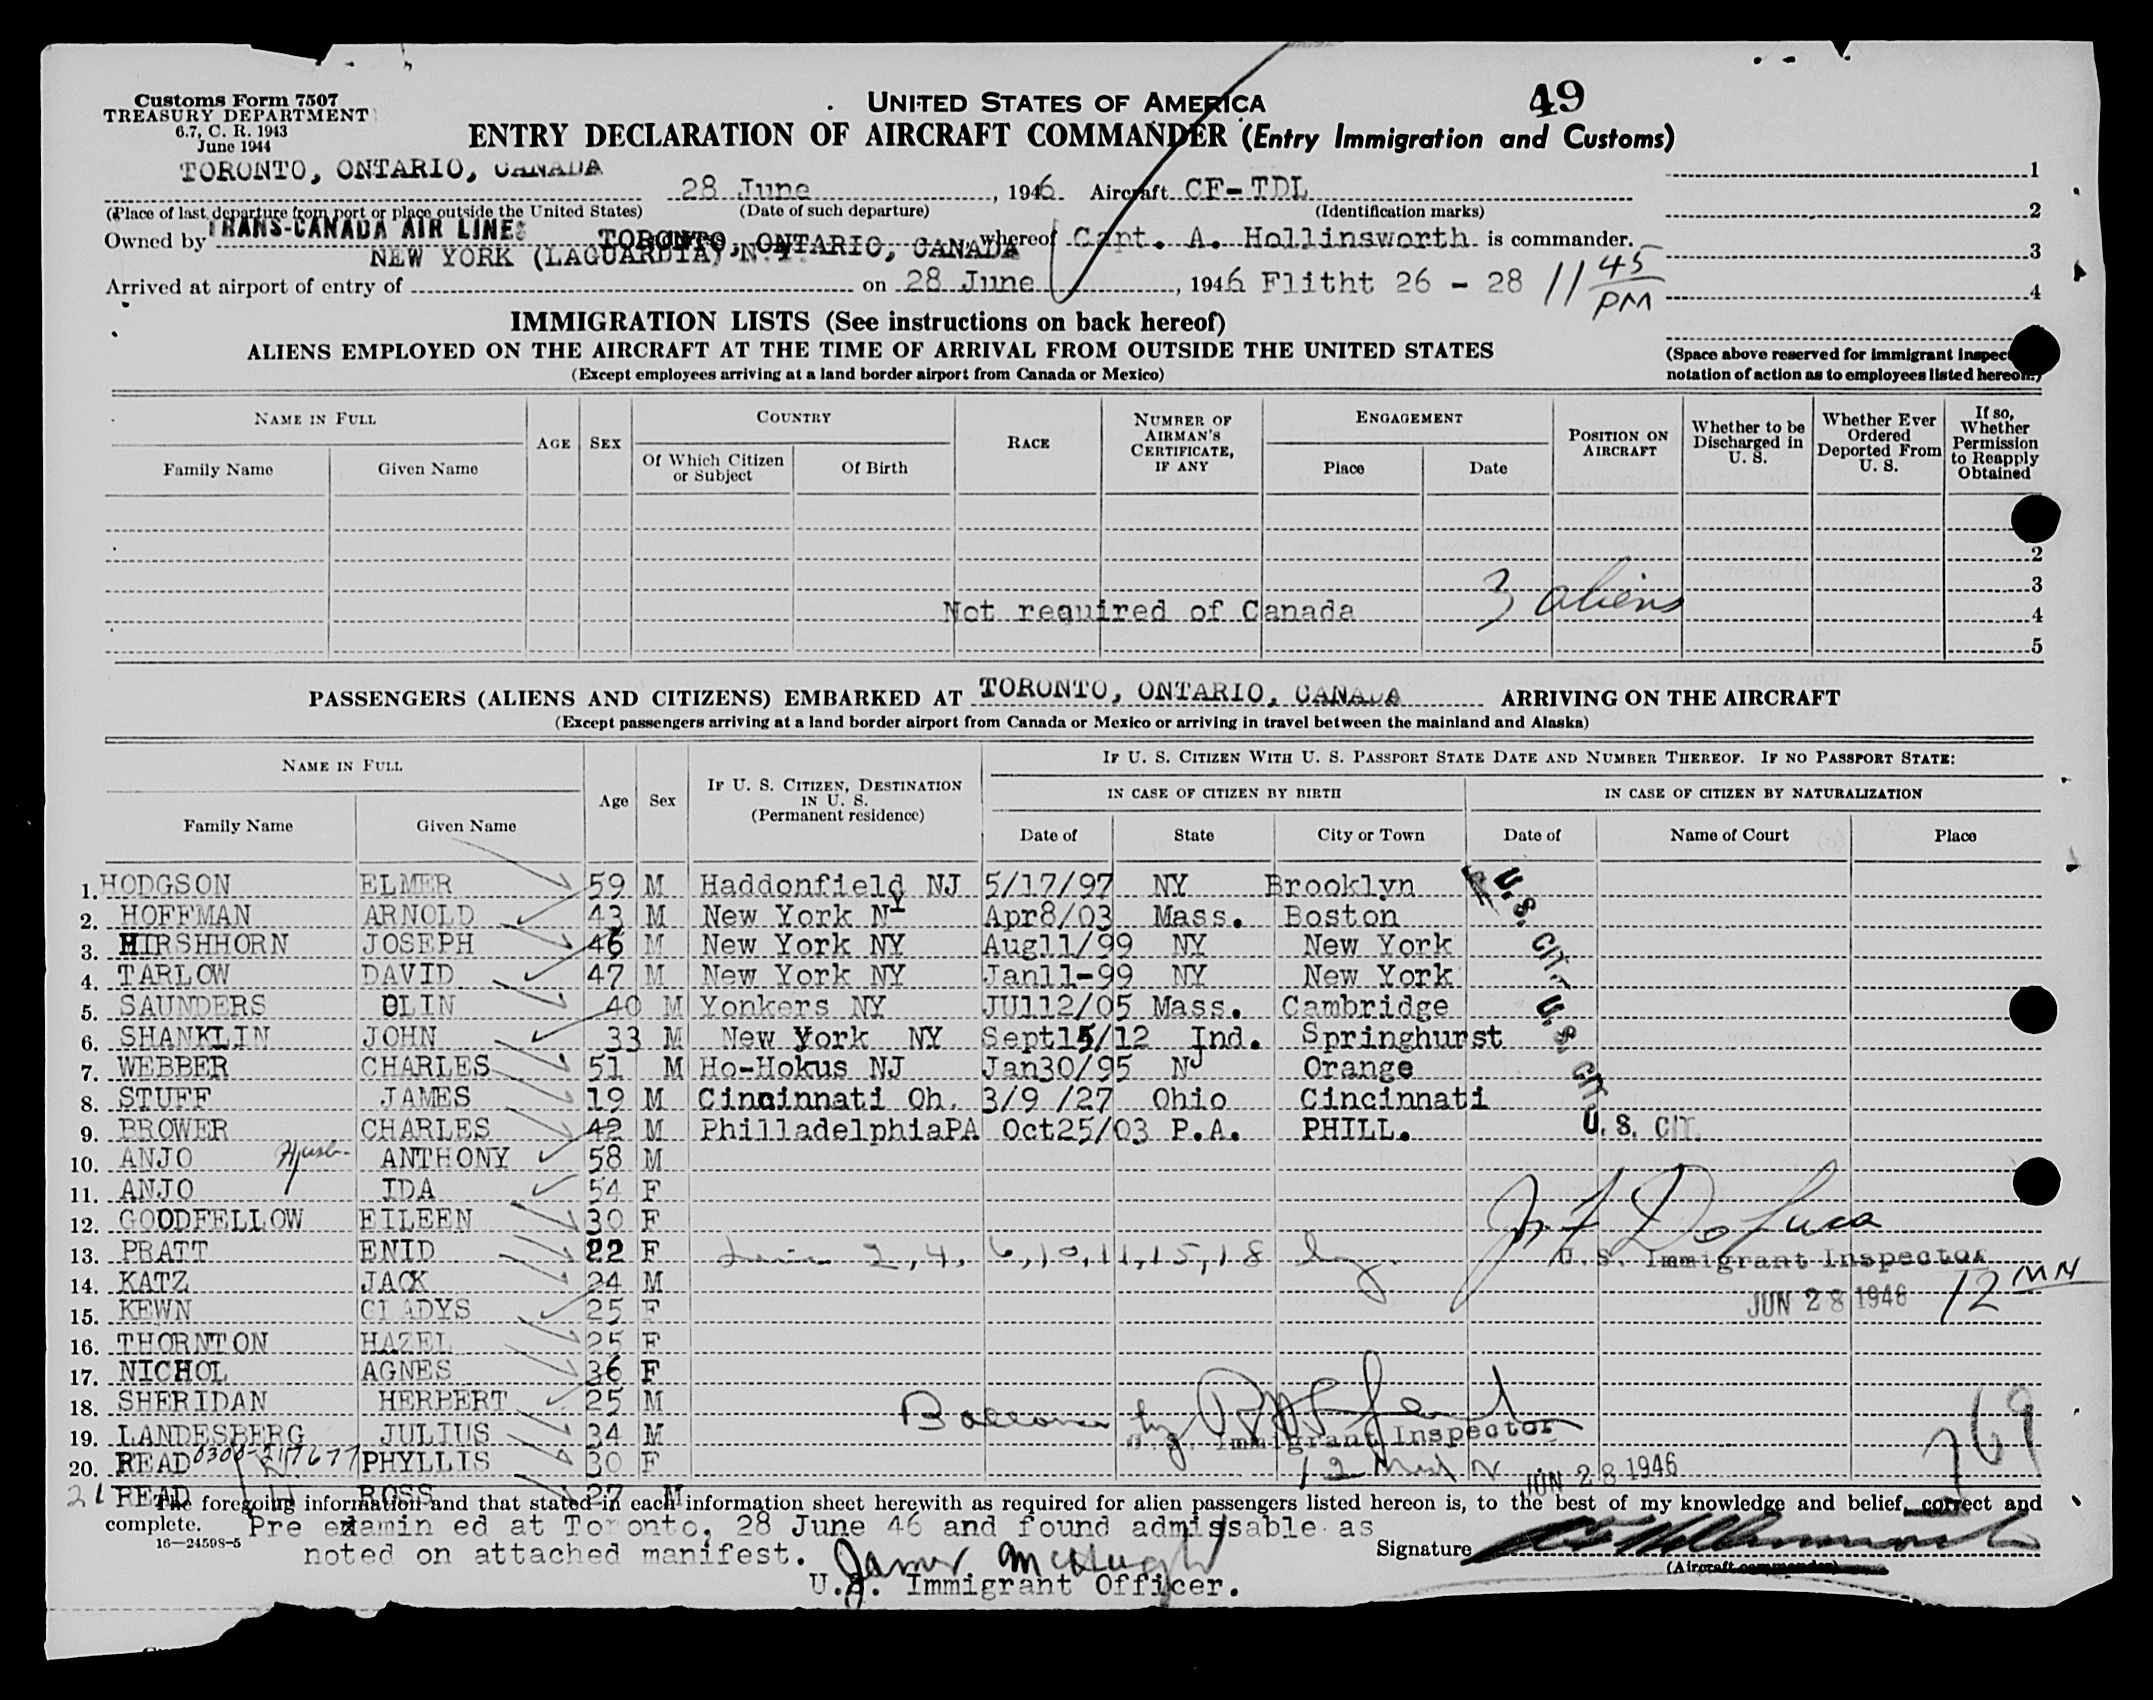 Customs Form 7507
TREASURY DEPARTMENT
6.7, C. R. 1943
June 1944
UNITED STATES OF AMERICA
49
ENTRY DECLARATION OF AIRCRAFT COMMANDER (Entry Immigration and Customs)
TORONTO, ONTARIO, CANADA
28 June, 1946 Aircraft CF-TDL
1
(Place of last departure from port or place outside the United States) (Date of such departure) (Identification marks)
2
TRANS-CANADA AIR LINES
Owned by TORONTO, ONTARIO, CANADA, whereof Capt. A. Hollinsworth is commander.
3
NEW YORK (LAGUARDIA) N.Y.
Arrived at airport of entry of on 28 June, 1946 Flitht 26 - 28 11 45 PM
4
IMMIGRATION LISTS (See instructions on back hereof)
ALIENS EMPLOYED ON THE AIRCRAFT AT THE TIME OF ARRIVAL FROM OUTSIDE THE UNITED STATES
(Except employees arriving at a land border airport from Canada or Mexico)
(Space above reserved for immigrant inspec
notation of action as to employees listed hereon.)
NAME IN FULL
Family Name Given Name
AGE SEX
COUNTRY
Of Which Citizen or Subject Of Birth
RACE
NUMBER OF AIRMAN'S CERTIFICATE, IF ANY
ENGAGEMENT
Place Date
POSITION ON AIRCRAFT
Whether to be Discharged in U. S.
Whether Ever Ordered Deported From U. S.
If so, Whether Permission to Reapply Obtained
2
3
Not required of Canada 3 aliens
4
5
PASSENGERS (ALIENS AND CITIZENS) EMBARKED AT TORONTO, ONTARIO, CANADA ARRIVING ON THE AIRCRAFT
(Except passengers arriving at a land border airport from Canada or Mexico or arriving in travel between the mainland and Alaska)
NAME IN FULL
Family Name Given Name
Age Sex
IF U. S. CITIZEN, DESTINATION IN U. S. (Permanent residence)
IF U. S. CITIZEN WITH U. S. PASSPORT STATE DATE AND NUMBER THEREOF. IF NO PASSPORT STATE:
IN CASE OF CITIZEN BY BIRTH IN CASE OF CITIZEN BY NATURALIZATION
Date of State City or Town Date of Name of Court Place
1. HODGSON ELMER 59 M Haddonfield NJ 5/17/97 NY Brooklyn U. S. CIT.
2. HOFFMAN ARNOLD 43 M New York NY Apr8/03 Mass. Boston
3. HIRSHHORN JOSEPH 46 M New York NY Aug11/99 NY New York
4. TARLOW DAVID 47 M New York NY Jan11-99 NY New York
5. SAUNDERS OLIN 40 M Yonkers NY JUl12/05 Mass. Cambridge U. S. CIT.
6. SHANKLIN JOHN 33 M New York NY Sept15/12 Ind. Springhurst
7. WEBBER CHARLES 51 M Ho-Hokus NJ Jan30/95 NJ Orange
8. STUFF JAMES 19 M Cincinnati Oh. 3/9 /27 Ohio Cincinnati
9. BROWER CHARLES 42 M PhilladelphiaPA Oct25/03 P.A. PHILL. U. S. CIT.
10. ANJO ANTHONY 58 M
11. ANJO IDA 54 F
12. GOODFELLOW EILEEN 30 F
13. PRATT ENID 22 F 2, 4, 6, 10, 11, 15, 18 by
U. S. Immigrant Inspector
14. KATZ JACK 24 M
JUN 28 1946 12 MN
15. KEWN GLADYS 25 F
16. THORNTON HAZEL 25 F
17. NICHOL AGNES 36 F
18. SHERIDAN HERBERT 25 M
Balance by
19. LANDESBERG JULIUS 34 M
U. S. Immigrant Inspector
20. READ 0300-217677 PHYLLIS 30 F
JUN 28 1946
21 READ ROSS 27 M
The foregoing information and that stated in each information sheet herewith as required for alien passengers listed hereon is, to the best of my knowledge and belief, correct and
complete.
Pre examin ed at Toronto, 28 June 46 and found admissable as
16—24598-5
noted on attached manifest. James McHugh
Signature
(Aircraft commander)
U.S. Immigrant Officer.